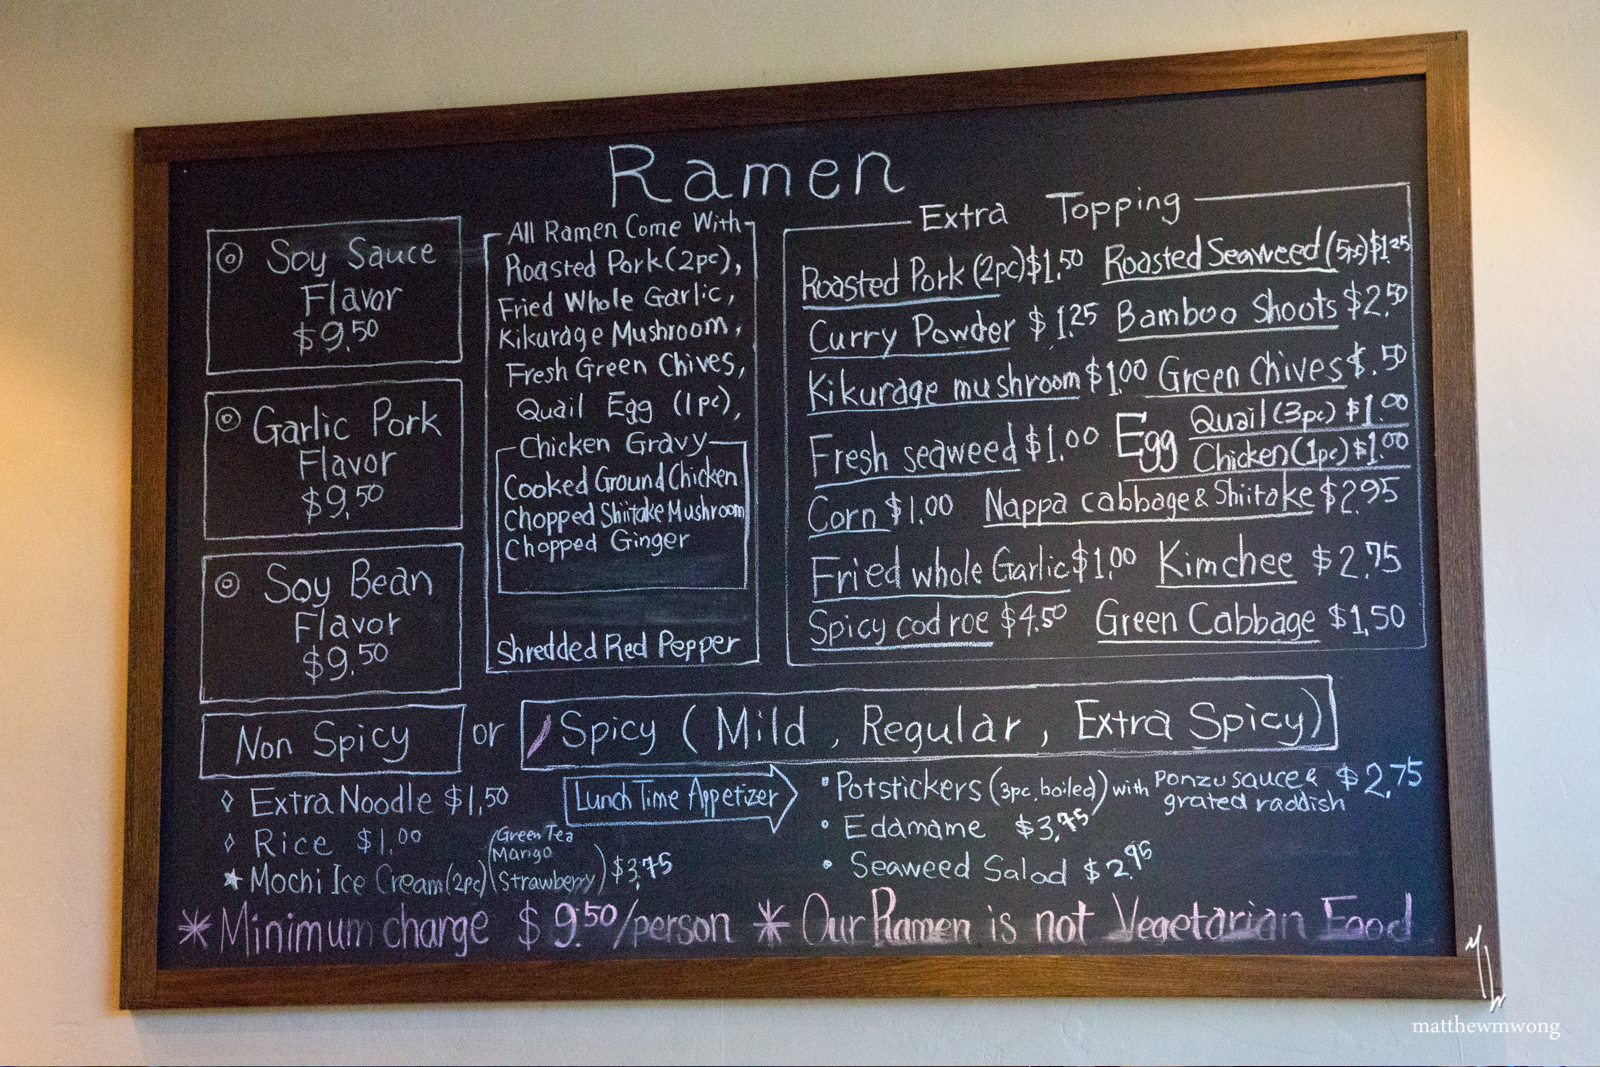 Ramen
Soy Sauce
Flavor
$9.50
Garlic Pork
Flavor
$9.50
Soy Bean
Flavor
$9.50
All Ramen Come With
Roasted Pork (2pc),
Fried Whole Garlic,
Kikurage Mushroom,
Fresh Green Chives,
Quail Egg (1pc),
Chicken Gravy
Cooked Ground Chicken
Chopped Shiitake Mushroom
Chopped Ginger
Shredded Red Pepper
Extra Topping
Roasted Pork (2pc) $1.50 Roasted Seaweed (5pc) $1.25
Curry Powder $1.25 Bamboo Shoots $2.50
Kikurage mushroom $1.00 Green Chives $.50
Fresh seaweed $1.00 Egg Quail (3pc) $1.00
Chicken (1pc) $1.00
Corn $1.00 Nappa cabbage & Shiitake $2.95
Fried whole Garlic $1.00 Kimchee $2.75
Spicy cod roe $4.50 Green Cabbage $1.50
Non Spicy or Spicy (Mild, Regular, Extra Spicy)
Extra Noodle $1.50
Rice $1.00
Mochi Ice Cream (2pc) (Green Tea
Mango
Strawberry) $3.75
Lunch Time Appetizer
• Potstickers (3pc, boiled) with Ponzu sauce & $2.75
grated raddish
• Edamame $3.75
• Seaweed Salad $2.95
* Minimum charge $9.50/person * Our Ramen is not Vegetarian Food
matthewmwong